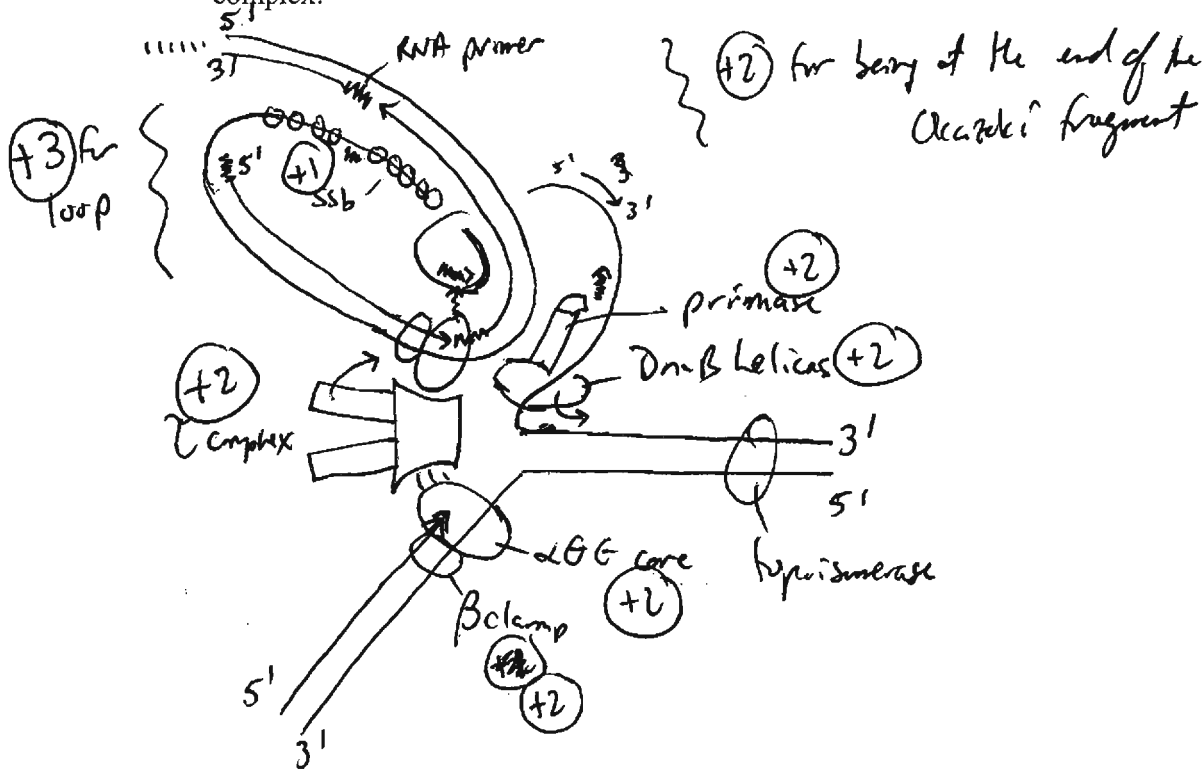 complex.
5'
3'
RNA primer
+2 for being at the end of the
Okazaki fragment
+3 for
loop
5'
+1
ssb
5'
3'
+2
primase
DnaB helicas +2
+2
τ complex
3'
5'
αθε core
+2
topoisomerase
βclamp
+2
5'
3'